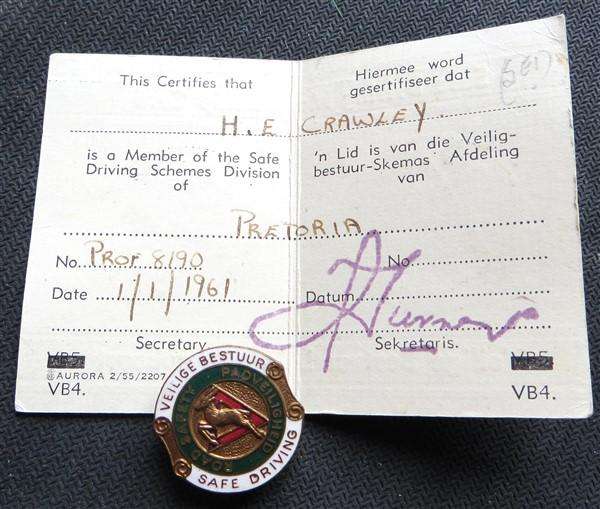 This Certifies that
H. E. CRAWLEY.
is a Member of the Safe
Driving Schemes Division
of
PRETORIA
No. PROF 8190
Date 1/1/1961
Secretary
@AURORA 2/55/2207
VB4.
Hiermee word
gesertifiseer dat
'n Lid is van die Veilig-
bestuur-Skemas Afdeling
van
No.
Datum
Sekretaris.
VB4.
VEILIGE BESTUUR
ROAD SAFETY PADVEILIGHEID
SAFE DRIVING